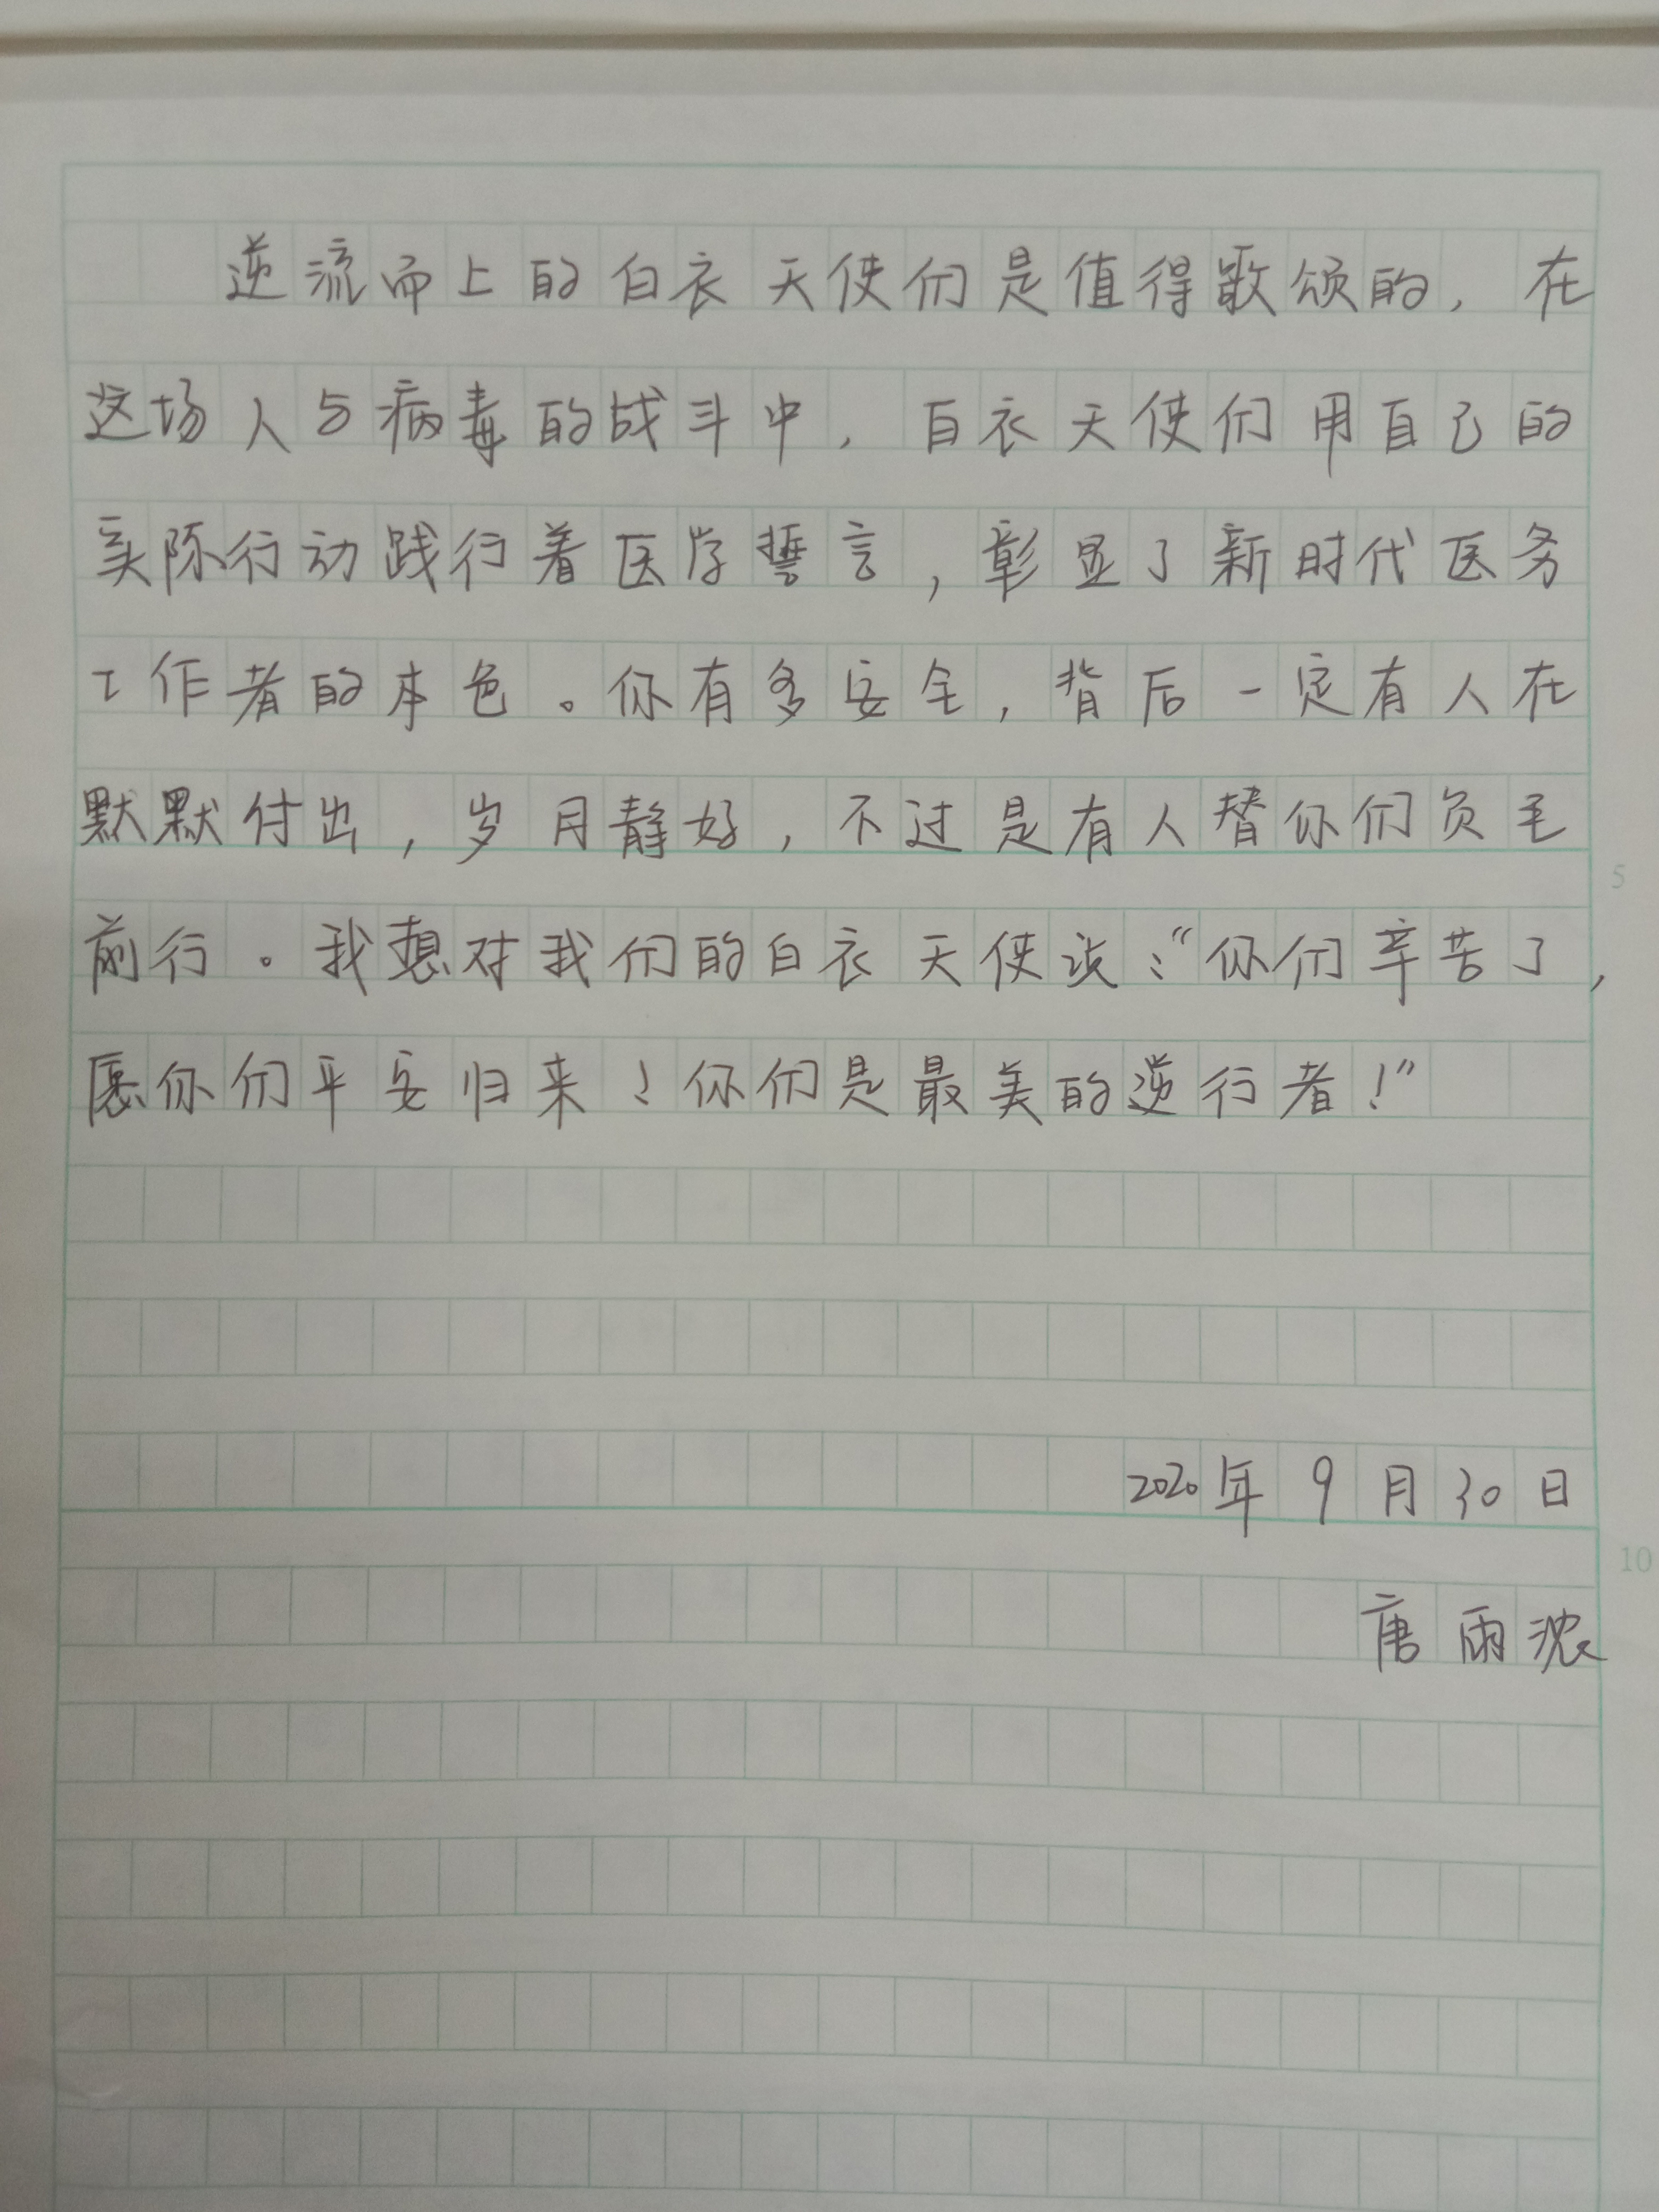 逆流而上的白衣天使们是值得歌颂的，在
这场人与病毒的战斗中，白衣天使们用自己的
实际行动践行着医学誓言，彰显了新时代医务
工作者的本色。你有多安全，背后一定有人在
默默付出，岁月静好，不过是有人替你们负毛
前行。我想对我们的白衣天使说：“你们辛苦了，
愿你们平安归来！你们是最美的逆行者！”
5
2020年9月30日
10
唐雨浓